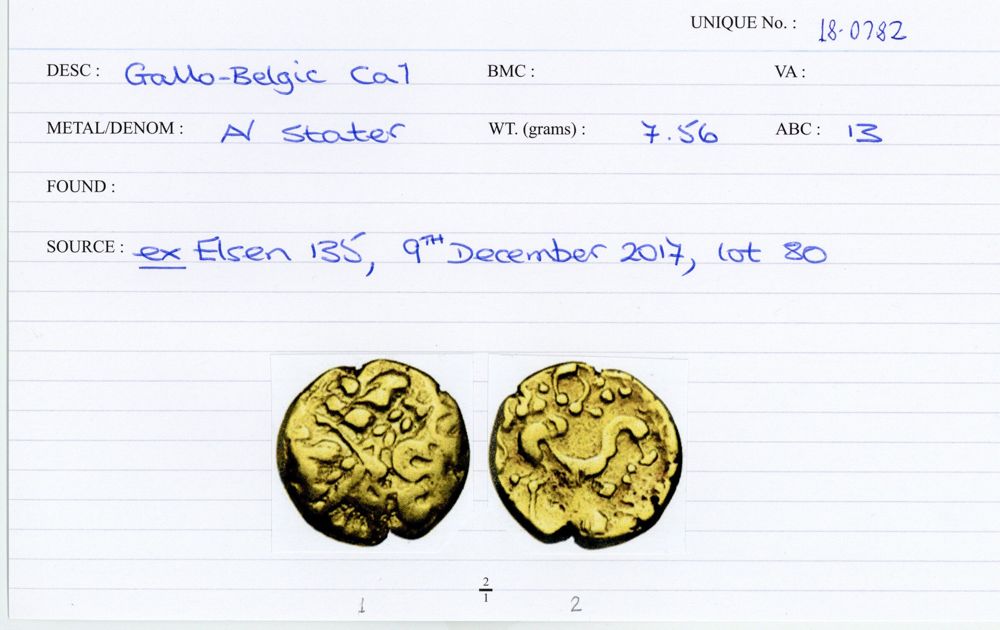 UNIQUE No. : 18-0782
DESC : Gallo-Belgic Ca1 BMC : VA :
METAL/DENOM : AV Stater WT. (grams) : 7.56 ABC : 13
FOUND :
SOURCE : ex Elsen 135, 9TH December 2017, lot 80
2
1
1 2